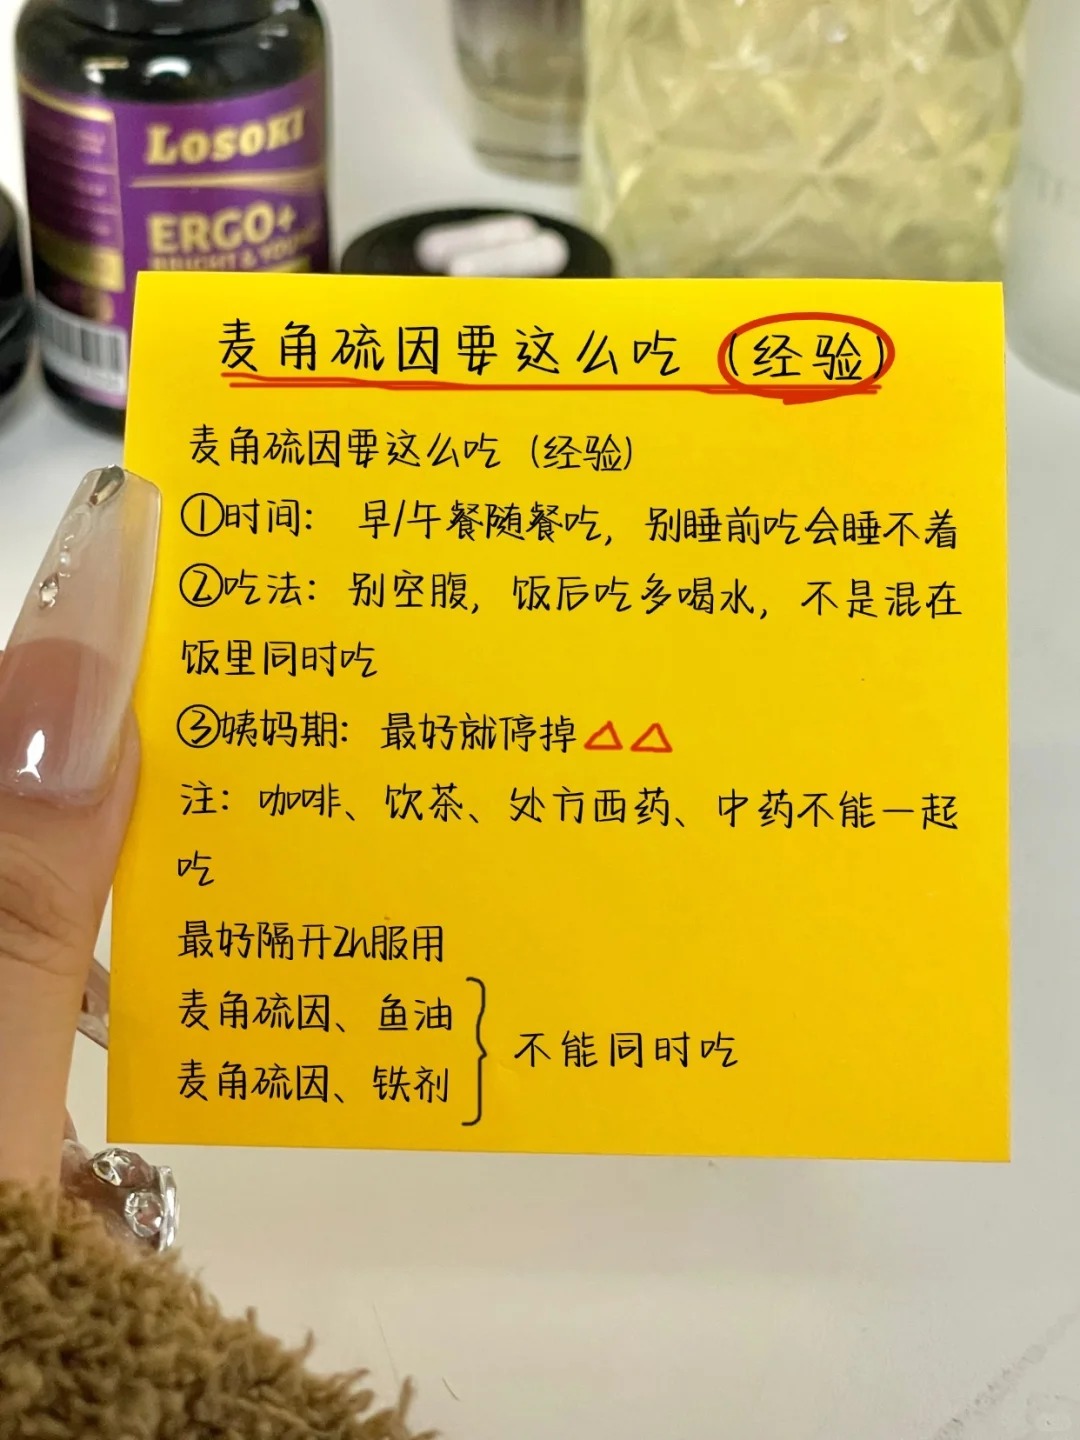 LOSOKI
ERGO+
BRIGHT & YOU
麦角硫因要这么吃 (经验)
麦角硫因要这么吃 (经验)
①时间: 早/午餐随餐吃, 别睡前吃会睡不着
②吃法: 别空腹, 饭后吃多喝水, 不是混在
饭里同时吃
③姨妈期: 最好就停掉△△
注: 咖啡、饮茶、处方西药、中药不能一起
吃
最好隔开2h服用
麦角硫因、鱼油
麦角硫因、铁剂
不能同时吃